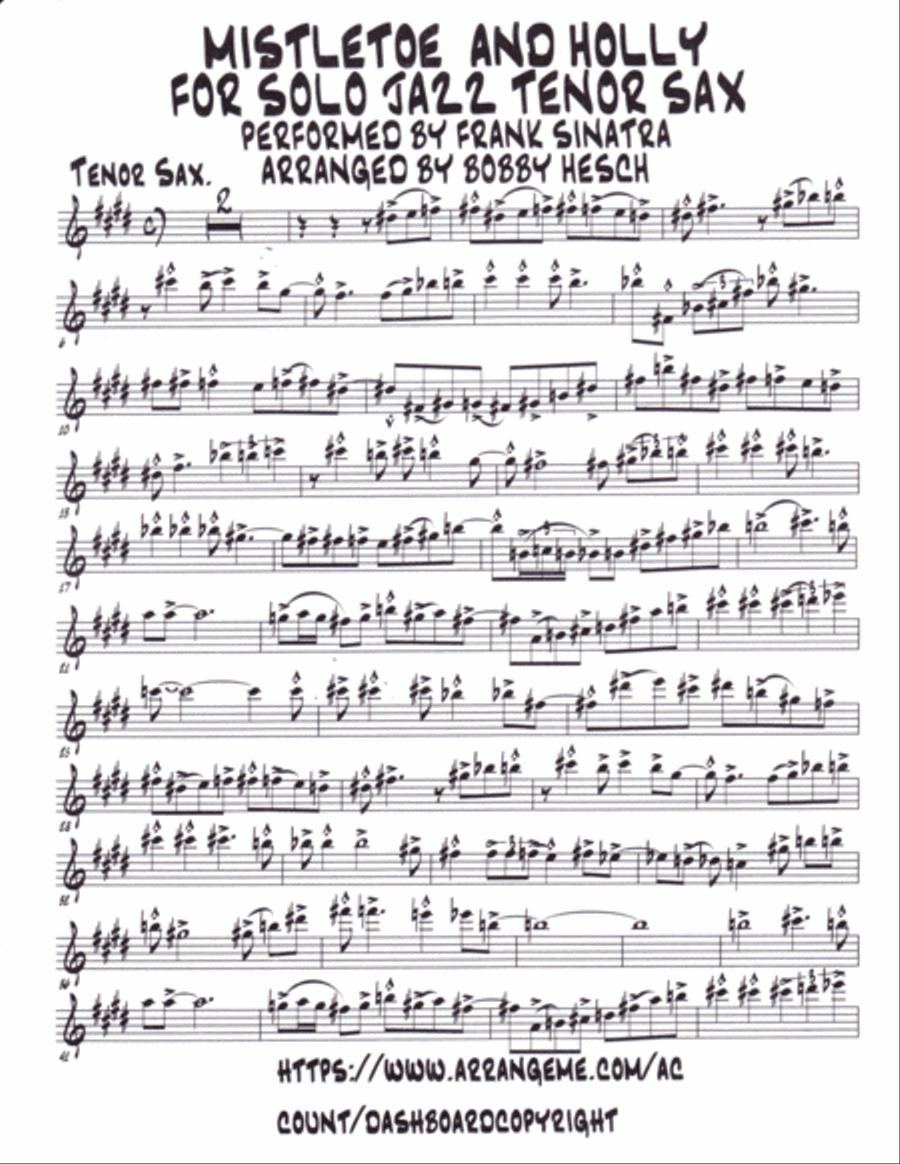 MISTLETOE AND HOLLY
FOR SOLO JAZZ TENOR SAX
PERFORMED BY FRANK SINATRA
TENOR SAX.
ARRANGED BY BOBBY HESCH
2
3
3
3
3
3
3
3
3
HTTPS://WWW.ARRANGEME.COM/AC
COUNT/DASHBOARDCOPYRIGHT